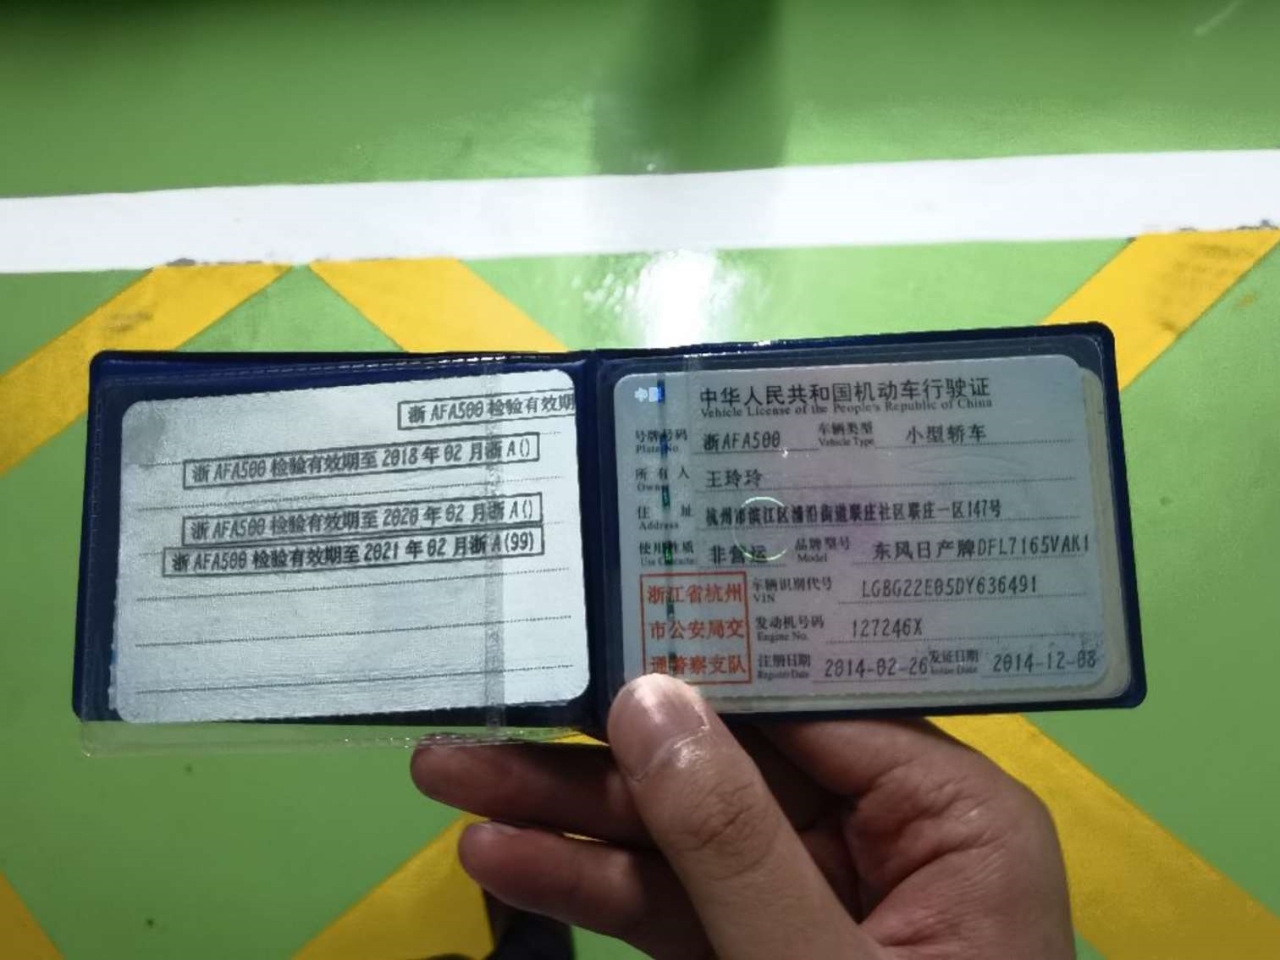 浙AFA500 检验有效期
浙AFA500 检验有效期至 2018 年 02 月浙A()
浙AFA500 检验有效期至 2020 年 02 月浙A()
浙AFA500 检验有效期至 2021 年 02 月浙A(99)
中国
中华人民共和国机动车行驶证
Vehicle License of the People's Republic of China
号牌号码 浙AFA500 车辆类型 小型轿车
Plate No. Vehicle Type
所有人 王玲玲
Owner
住址 杭州市滨江区浦沿街道联庄社区联庄一区147号
Address
使用性质 非营运 品牌型号 东风日产牌DFL7165VAK1
Use Character Model
浙江省杭州
市公安局交
通警察支队
车辆识别代号 LGBG22E05DY636491
VIN
发动机号码 127246X
Engine No.
注册日期 2014-02-26 发证日期 2014-12-08
Register Date Issue Date